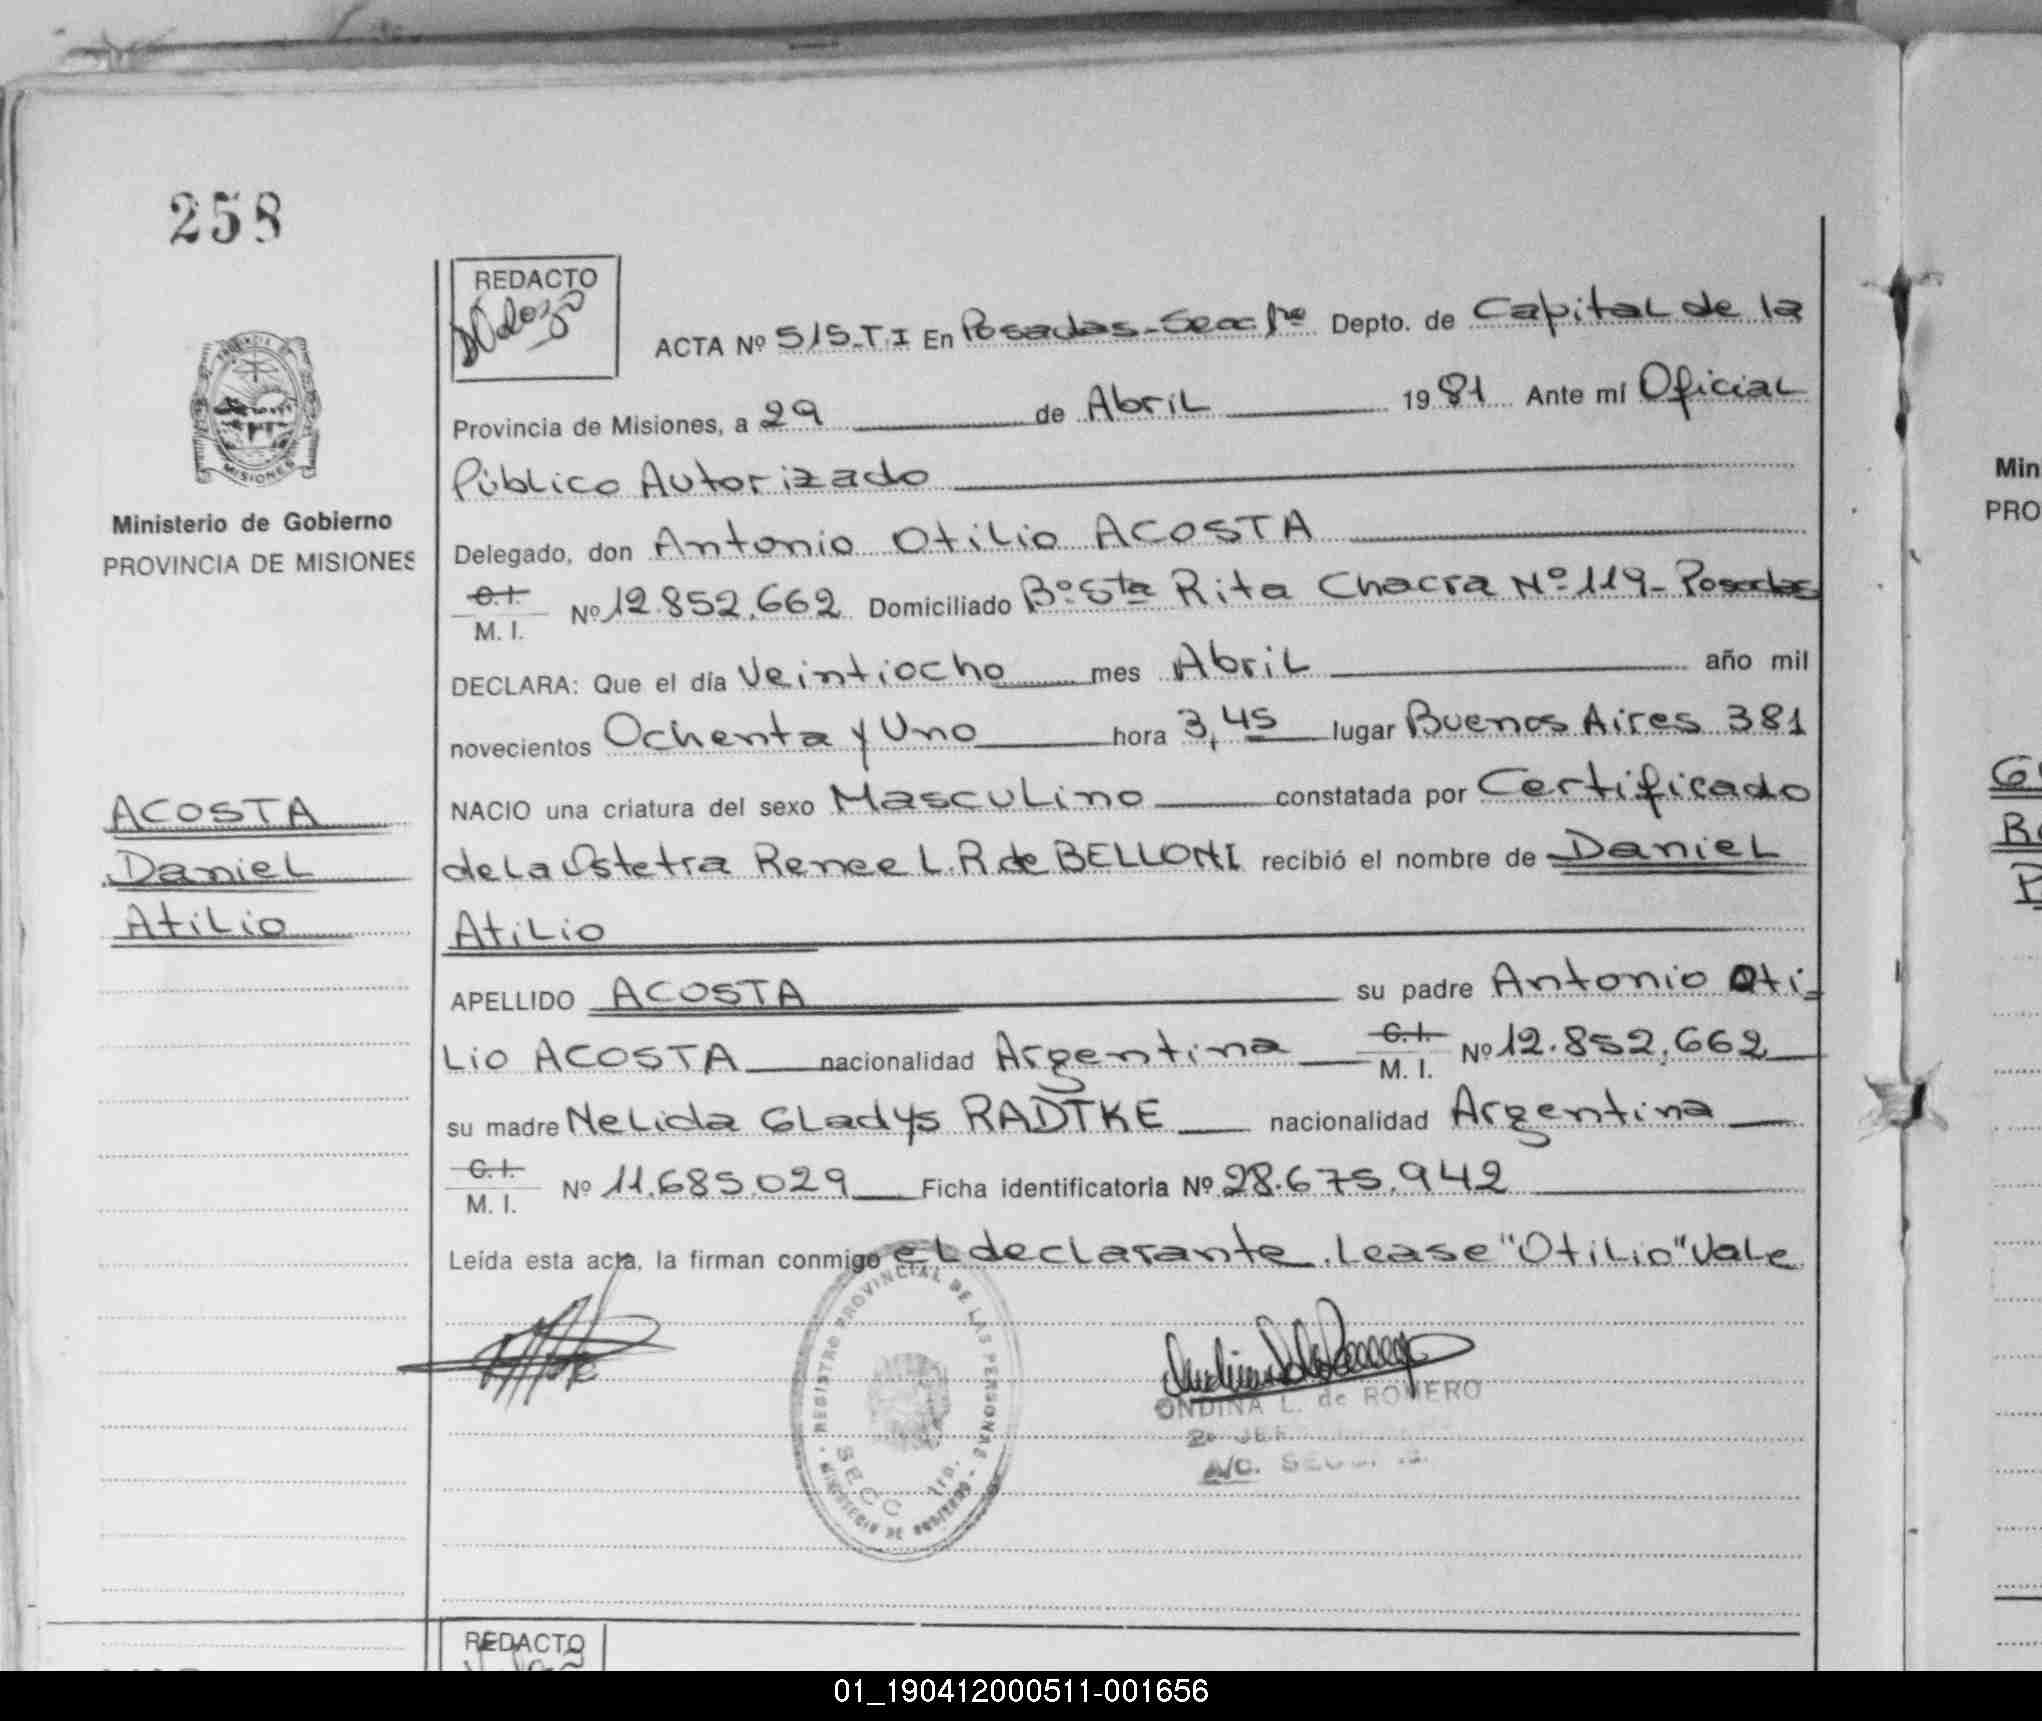 258
REDACTO
ACTA Nº 515-T.I En Posadas-Secc 1ra Depto. de Capital de la
Provincia de Misiones, a 29 de Abril 1981 Ante mí Oficial
Público Autorizado
PROVINCIA DE
MISIONES
Ministerio de Gobierno
PROVINCIA DE MISIONES
Delegado, don Antonio Otilio ACOSTA
C.I.
M. I. Nº 12.852.662 Domiciliado Bº Sta Rita Chacra Nº 119- Posadas
DECLARA: Que el día Veintiocho mes Abril año mil
novecientos Ochenta y Uno hora 3,45 lugar Buenos Aires 381
NACIO una criatura del sexo Masculino constatada por Certificado
de La Ostetra Renee L. R. de BELLONI recibió el nombre de Daniel
Atilio
ACOSTA
Daniel
Atilio
APELLIDO ACOSTA su padre Antonio Oti-
Lio ACOSTA nacionalidad Argentina C.I. M. I. Nº 12.852.662
su madre Nelida Gladys RADTKE nacionalidad Argentina
C.I.
M. I. Nº 11.685.029 Ficha identificatoria Nº 28.675.942
Leída esta acta, la firman conmigo el declarante. Lease "Otilio" Vale
REGISTRO PROVINCIAL DE LAS PERSONAS
SECC 1ra.
MINISTERIO DE GOBIERNO
ONDINA L. de ROMERO
2º JEF
A/C. SECC.
REDACTO
Min
PRO
01_190412000511-001656